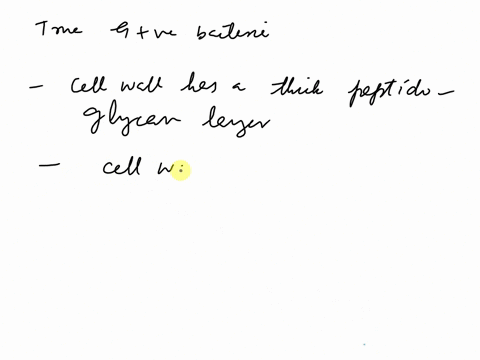 True G+ve bacteria
- Cell wall has a thick peptido-
glycan layer
- cell w